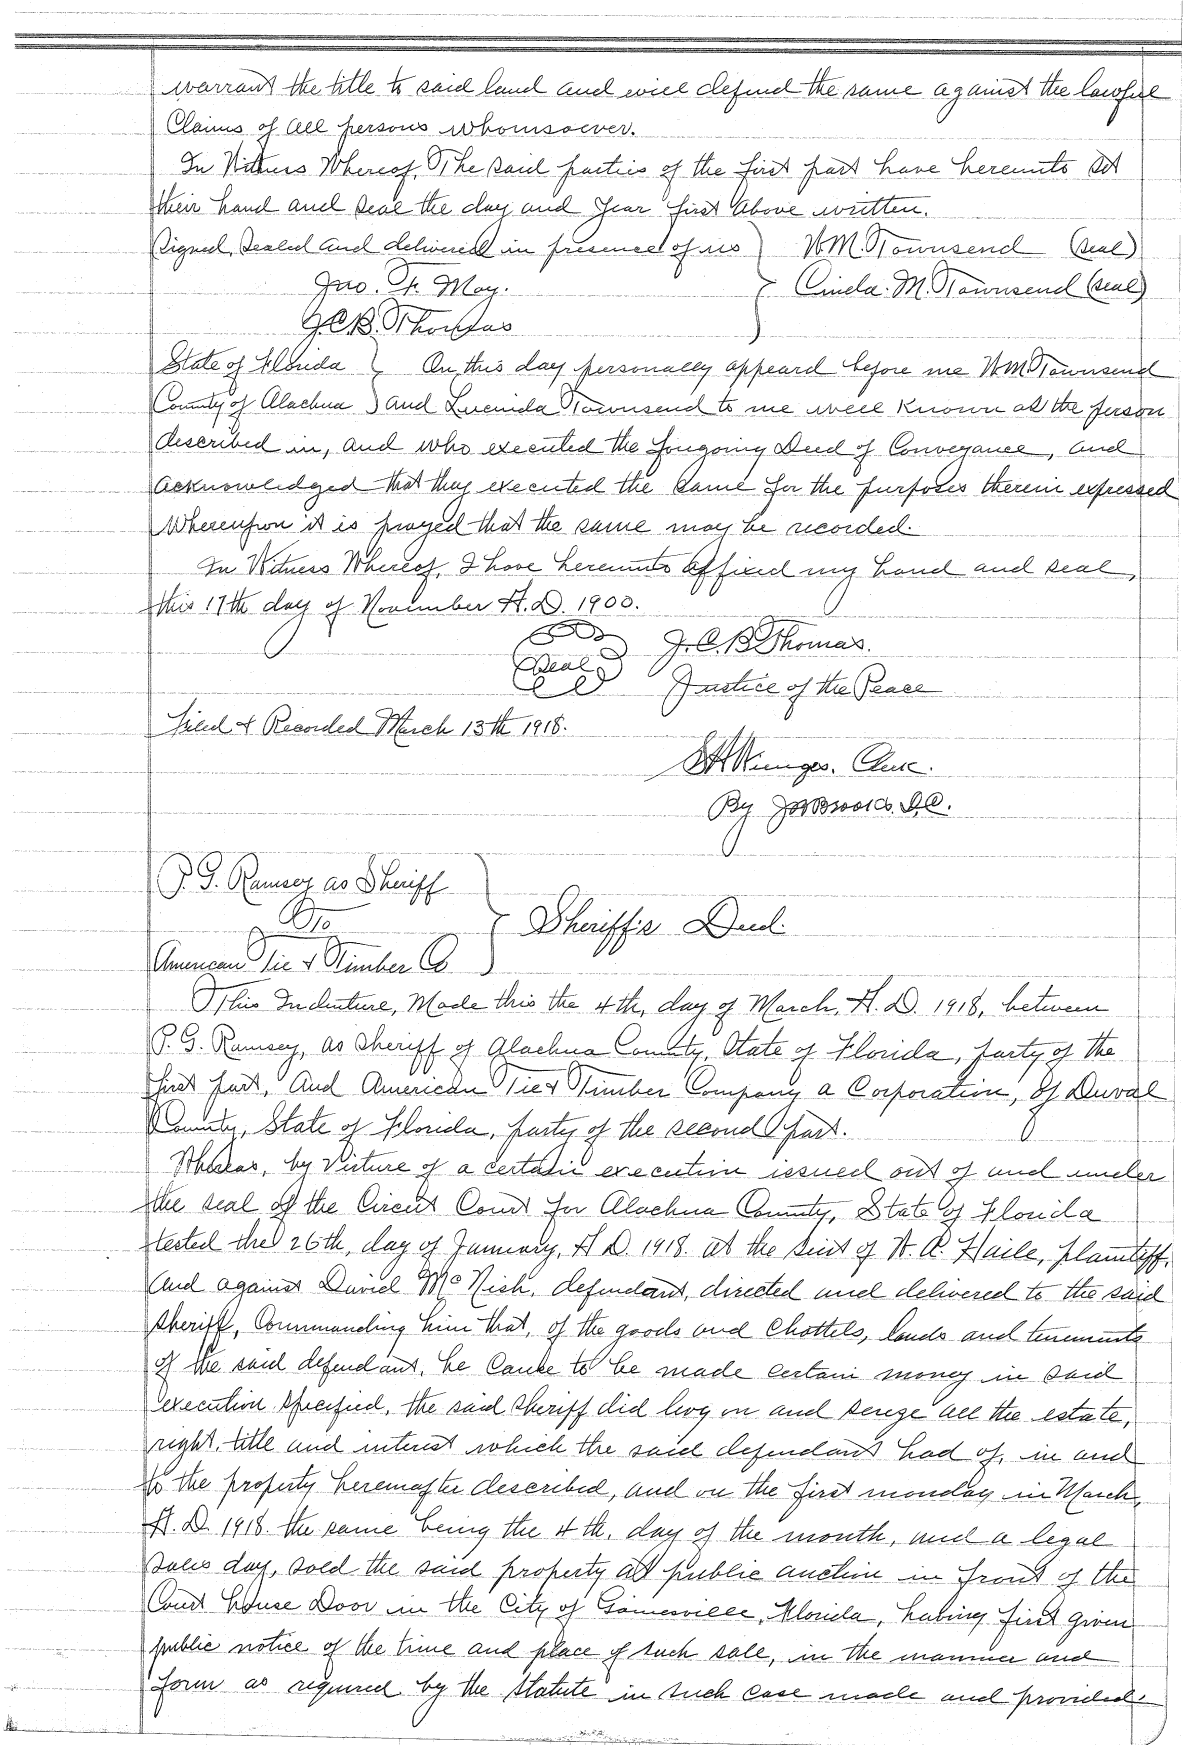 warrant the title to said land and will defend the same against the lawful
Claims of all persons whomsoever.
In Witness Whereof, The said parties of the first part have hereunto set
their hand and seal the day and Year first above written.
Signed, Sealed and delivered in presence of us } W.M. Townsend (seal)
Jno. F. May. } Cinda. M. Townsend (seal)
J.C.B. Thomas
State of Florida } On this day personally appeard before me W.M. Townsend
County of Alachua } and Lucinda Townsend to me well known as the person
described in, and who executed the forgoing Deed of Conveyance, and
acknowledged that they executed the same for the purposes therein expressed
Whereupon it is prayed that the same may be recorded.
In Witness Whereof, I have hereunto affixed my hand and seal,
this 17th day of November A.D. 1900.
J.C.B. Thomas.
(Seal) Justice of the Peace
Filed & Recorded March 13th 1918.
Clerk.
By D.C.
P. G. Ramsey as Sheriff
To } Sheriff's Deed.
American Tie & Timber Co
This Indenture, Made this the 4th, day of March, A.D. 1918, between
P.G. Ramsey, as Sheriff of Alachua County, State of Florida, party of the
first part, And American Tie & Timber Company a Corporation, of Duval
County, State of Florida, party of the second part.
Whereas, by virture of a certain execution issued out of and under
the seal of the Circuit Court for Alachua County, State of Florida
tested the 26th, day of January, A.D. 1918. at the suit of W. R. Haile, plaintiff,
And against David McNish, defendant, directed and delivered to the said
sheriff, Commanding him that, of the goods and Chattels, lands and tenements
of the said defendant, he Cause to be made certain money in said
execution specified, the said sheriff did levy on and seize all the estate,
right, title and interest which the said defendant had of, in and
to the property hereinafter described, and on the first monday in March,
A.D. 1918. the same being the 4th, day of the month, and a legal
sales day, sold the said property at public auction in front of the
Court house Door in the City of Gainesville, Florida, having first given
public notice of the time and place of such sale, in the manner and
form as required by the statute in such case made and provided.